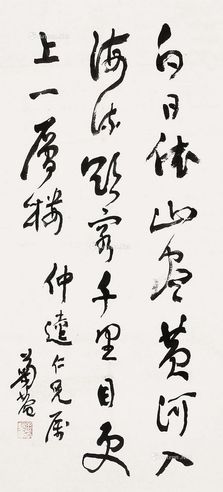 白日依山尽黄河入
海流欲窮千里目更
上一層樓
仲遠仁兄屬